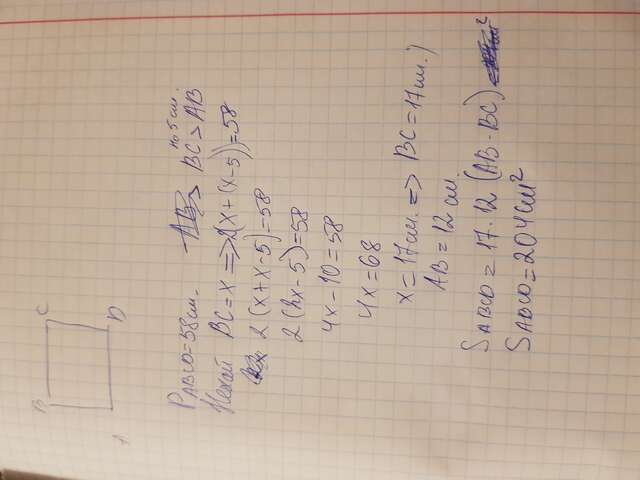 B C
A D
P ABCD = 58 см. BC > AB на 5 см.
Нехай BC = x => 2(x + (x - 5)) = 58
2 (x + x - 5) = 58
2 (2x - 5) = 58
4x - 10 = 58
4x = 68
x = 17 см. => BC = 17 см.;
AB = 12 см.
S ABCD = 17 · 12 (AB · BC)
S ABCD = 204 см²